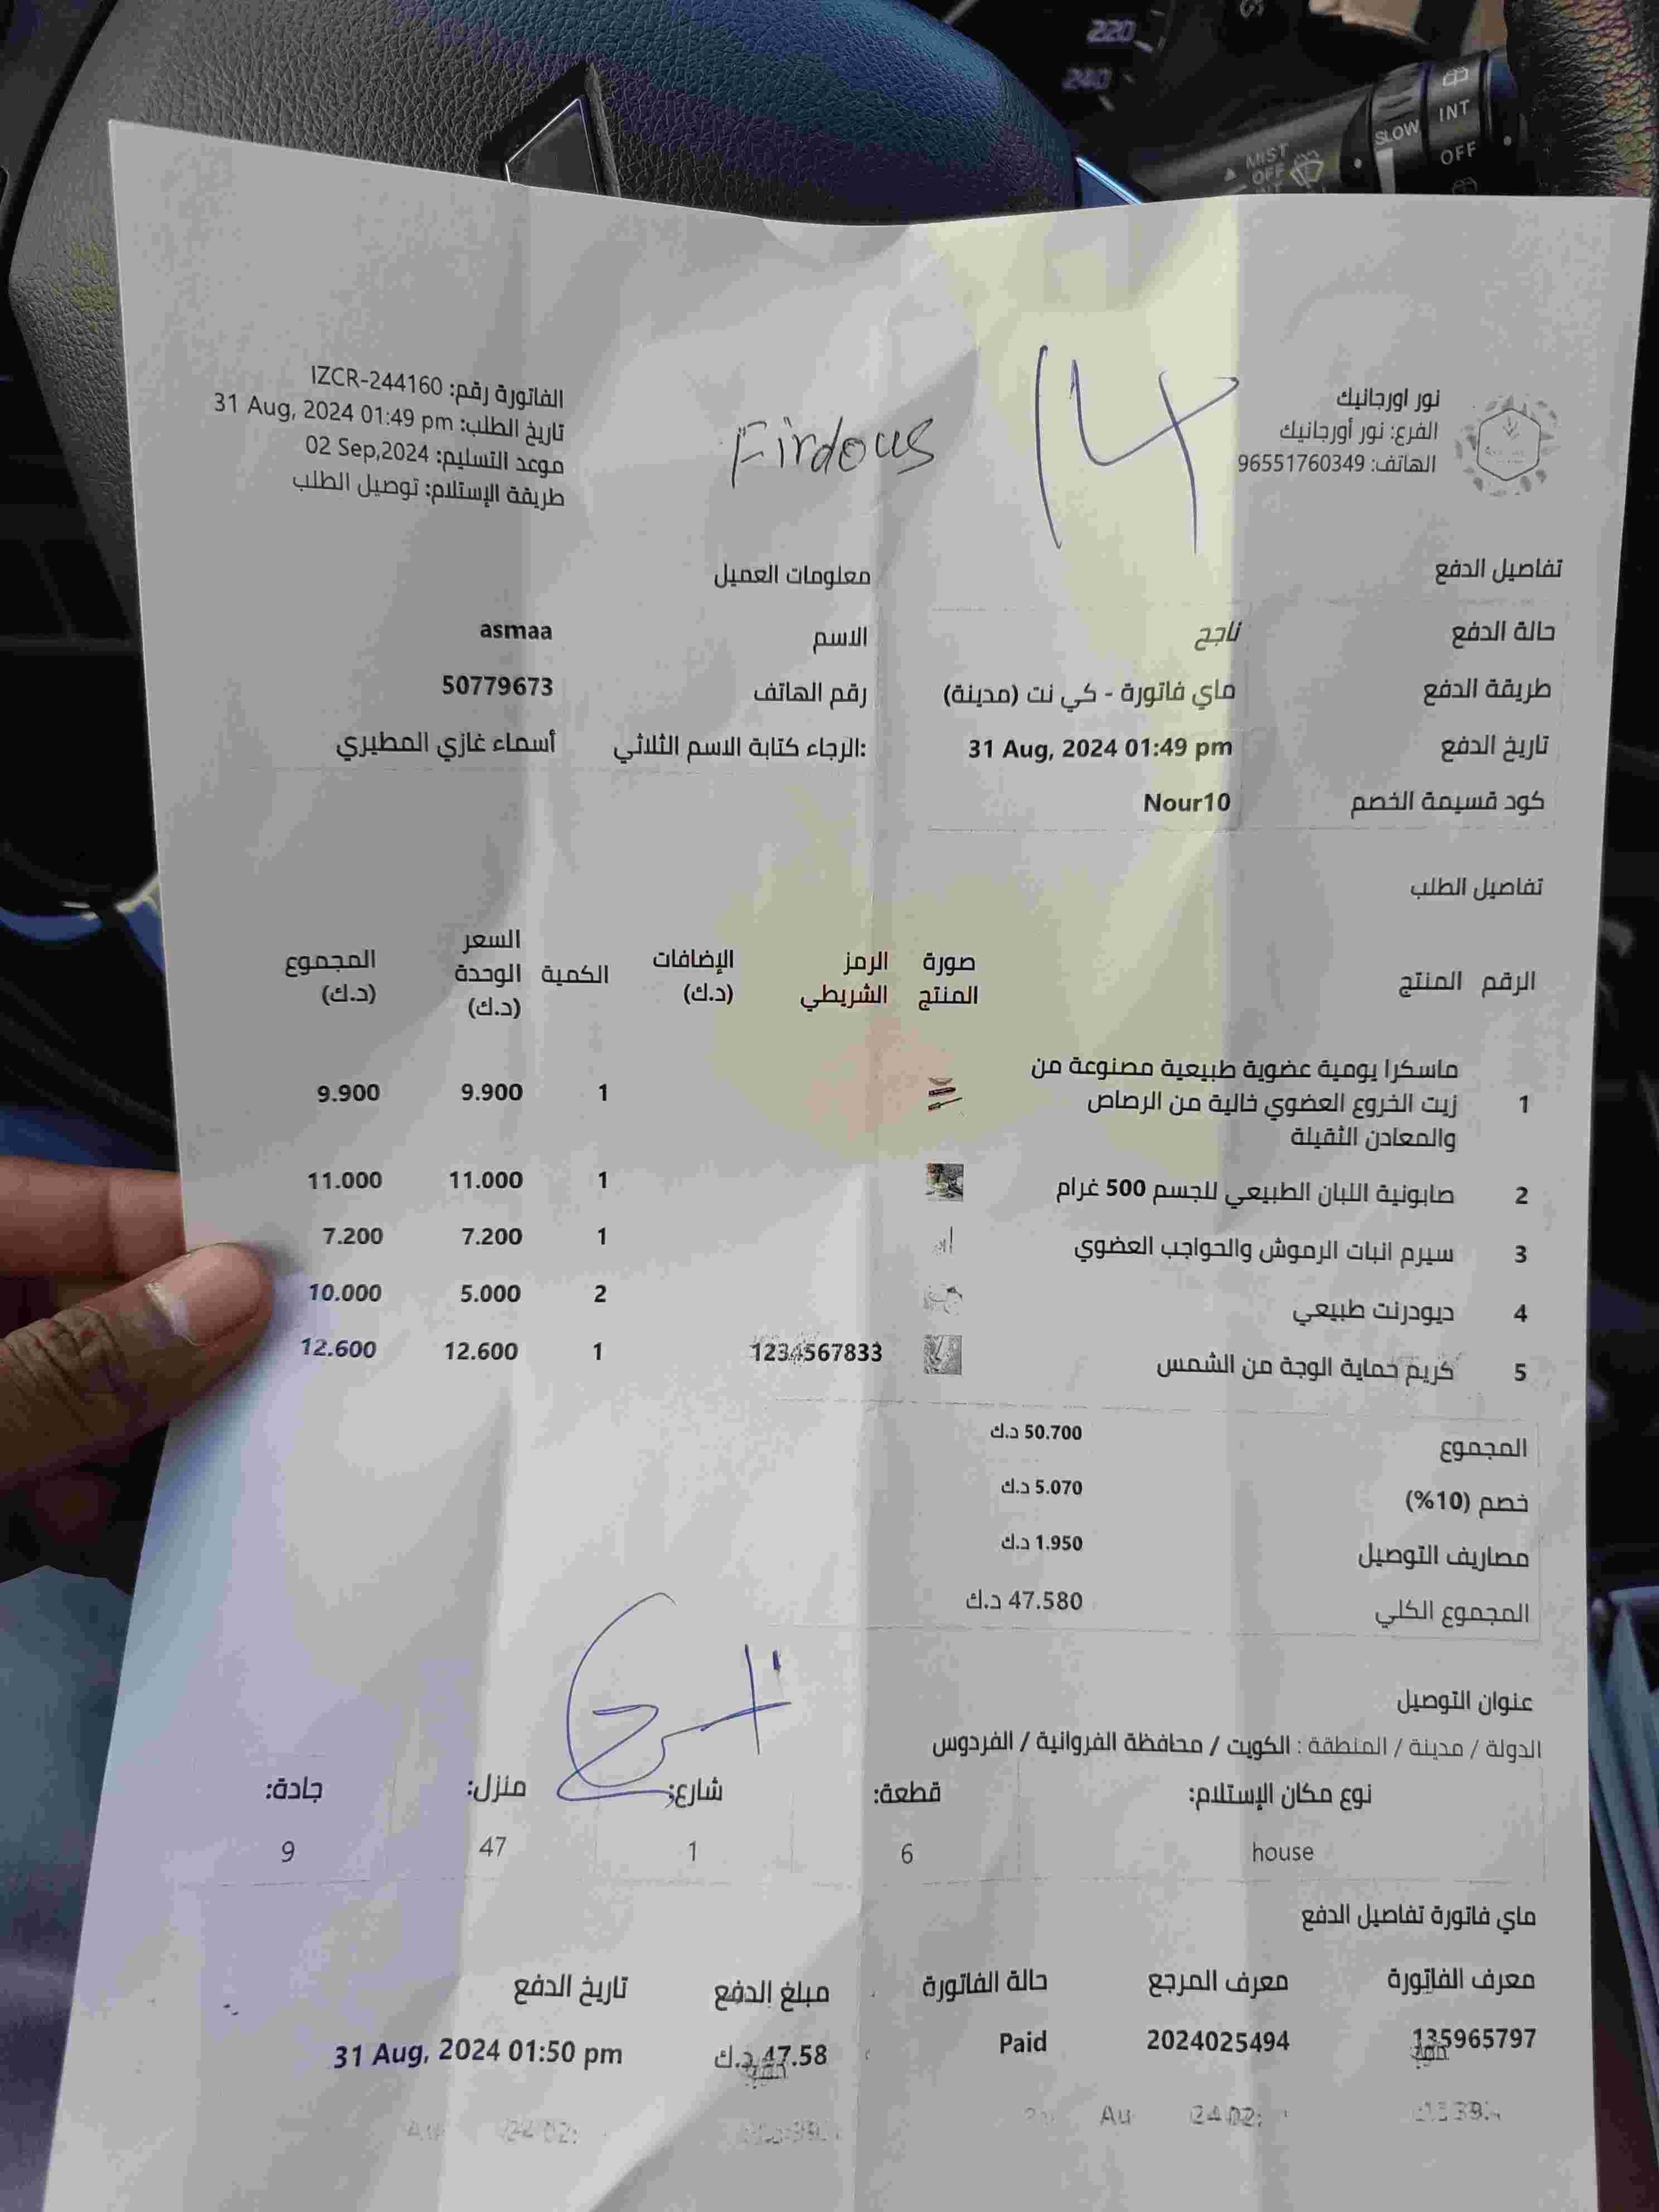 220
240
INT
SLOW
OFF
MIST
OFF
نور اورجانيك
الفرع: نور أورجانيك
الهاتف: 96551760349
14
Firdous
الفاتورة رقم: IZCR-244160
تاريخ الطلب: 31 Aug, 2024 01:49 pm
موعد التسليم: 02 Sep,2024
طريقة الإستلام: توصيل الطلب
تفاصيل الدفع
حالة الدفع ناجح
طريقة الدفع ماي فاتورة - كي نت (مدينة)
تاريخ الدفع 31 Aug, 2024 01:49 pm
كود قسيمة الخصم Nour10
معلومات العميل
الاسم asmaa
رقم الهاتف 50779673
الرجاء كتابة الاسم الثلاثي: أسماء غازي المطيري
تفاصيل الطلب
الرقم المنتج صورة المنتج الرمز الشريطي الإضافات (د.ك) الكمية السعر الوحدة (د.ك) المجموع (د.ك)
1 ماسكرا يومية عضوية طبيعية مصنوعة من
زيت الخروع العضوي خالية من الرصاص
والمعادن الثقيلة
1 9.900 9.900
2 صابونية اللبان الطبيعي للجسم 500 غرام 1 11.000 11.000
3 سيرم انبات الرموش والحواجب العضوي 1 7.200 7.200
4 ديودرنت طبيعي 2 5.000 10.000
5 كريم حماية الوجة من الشمس 1234567833 1 12.600 12.600
المجموع 50.700 د.ك
خصم (10%) 5.070 د.ك
مصاريف التوصيل 1.950 د.ك
المجموع الكلي 47.580 د.ك
عنوان التوصيل
الدولة / مدينة / المنطقة : الكويت / محافظة الفروانية / الفردوس
نوع مكان الإستلام: قطعة: شارع: منزل: جادة:
house 6 1 47 9
ماي فاتورة تفاصيل الدفع
معرف الفاتورة معرف المرجع حالة الفاتورة مبلغ الدفع تاريخ الدفع
135965797 2024025494 Paid 47.58 د.ك 31 Aug, 2024 01:50 pm